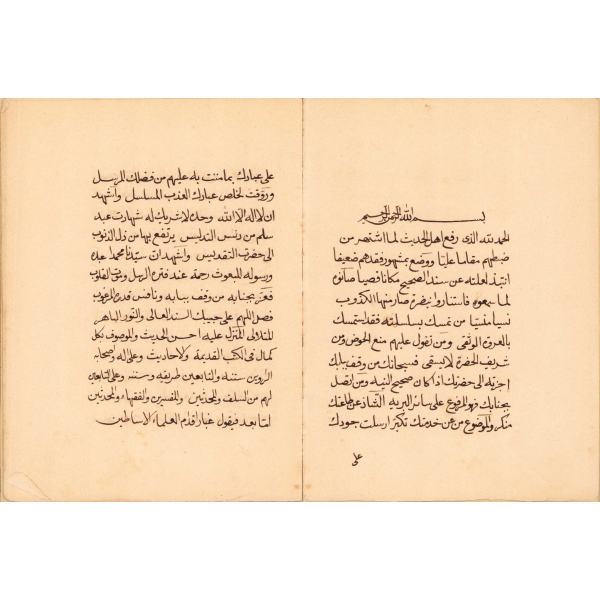 بسم الله الرحمن الرحيم
الحمد لله الذى رفع اهل الحديث لما اشتهر من
ضبطهم مقاما عليا ووضع بمشهور فقدهم ضعيفا
انتبذ لعلته عن سند الصحيح مكانا قصيا صانوه
لما سمعوه فاستناروا بنضرة صار منها الكذوب
نسيا منسيا من تمسك بسلسلته فقد استمسك
بالعروة الوثقى ومن تقول عليهم منع الحوض ومن
شريف الحضرة لا يسقى فسبحانك من وقف ببابك
اجزته الى حضرتك اذا كان صحيح النيه ومن اتصل
بجنابك فهو المرفوع على سائر البريه الشاذ عن طاعتك
منكر والموضوع من عن خدمتك تكبر ارسلت جودك
على
على عبادك بما مننت به عليهم من فضلك المرسل
وروقت لخاص عبادك العذب المسلسل واشهد
ان لا اله الا الله وحده لا شريك له شهادت عبد
سلم من دنس التدليس يرتفع بها من ذل الذنوب
الى حضرت التقديس واشهد ان سيدنا محمدا عبده
ورسوله المبعوث رحمة عند فترة الرسل وموت القلوب
فعزز بجنابه من وقف ببابه ونافس قدره المرغوب
فصل اللهم على حبيبك السند العالى والنور الباهر
المتلالى المنزل عليه احسن الحديث والموصوف بكل
كمال فى الكتب القديمة والاحاديث وعلى اله وصحابه
الروين سنته والتابعين طريقه وسننه وعلى التابعين
لهم من السلف والمحدثين والمفسرين والفقهاء والمحدثين
اما بعد فيقول غبار اقدم العلماء الاساطين